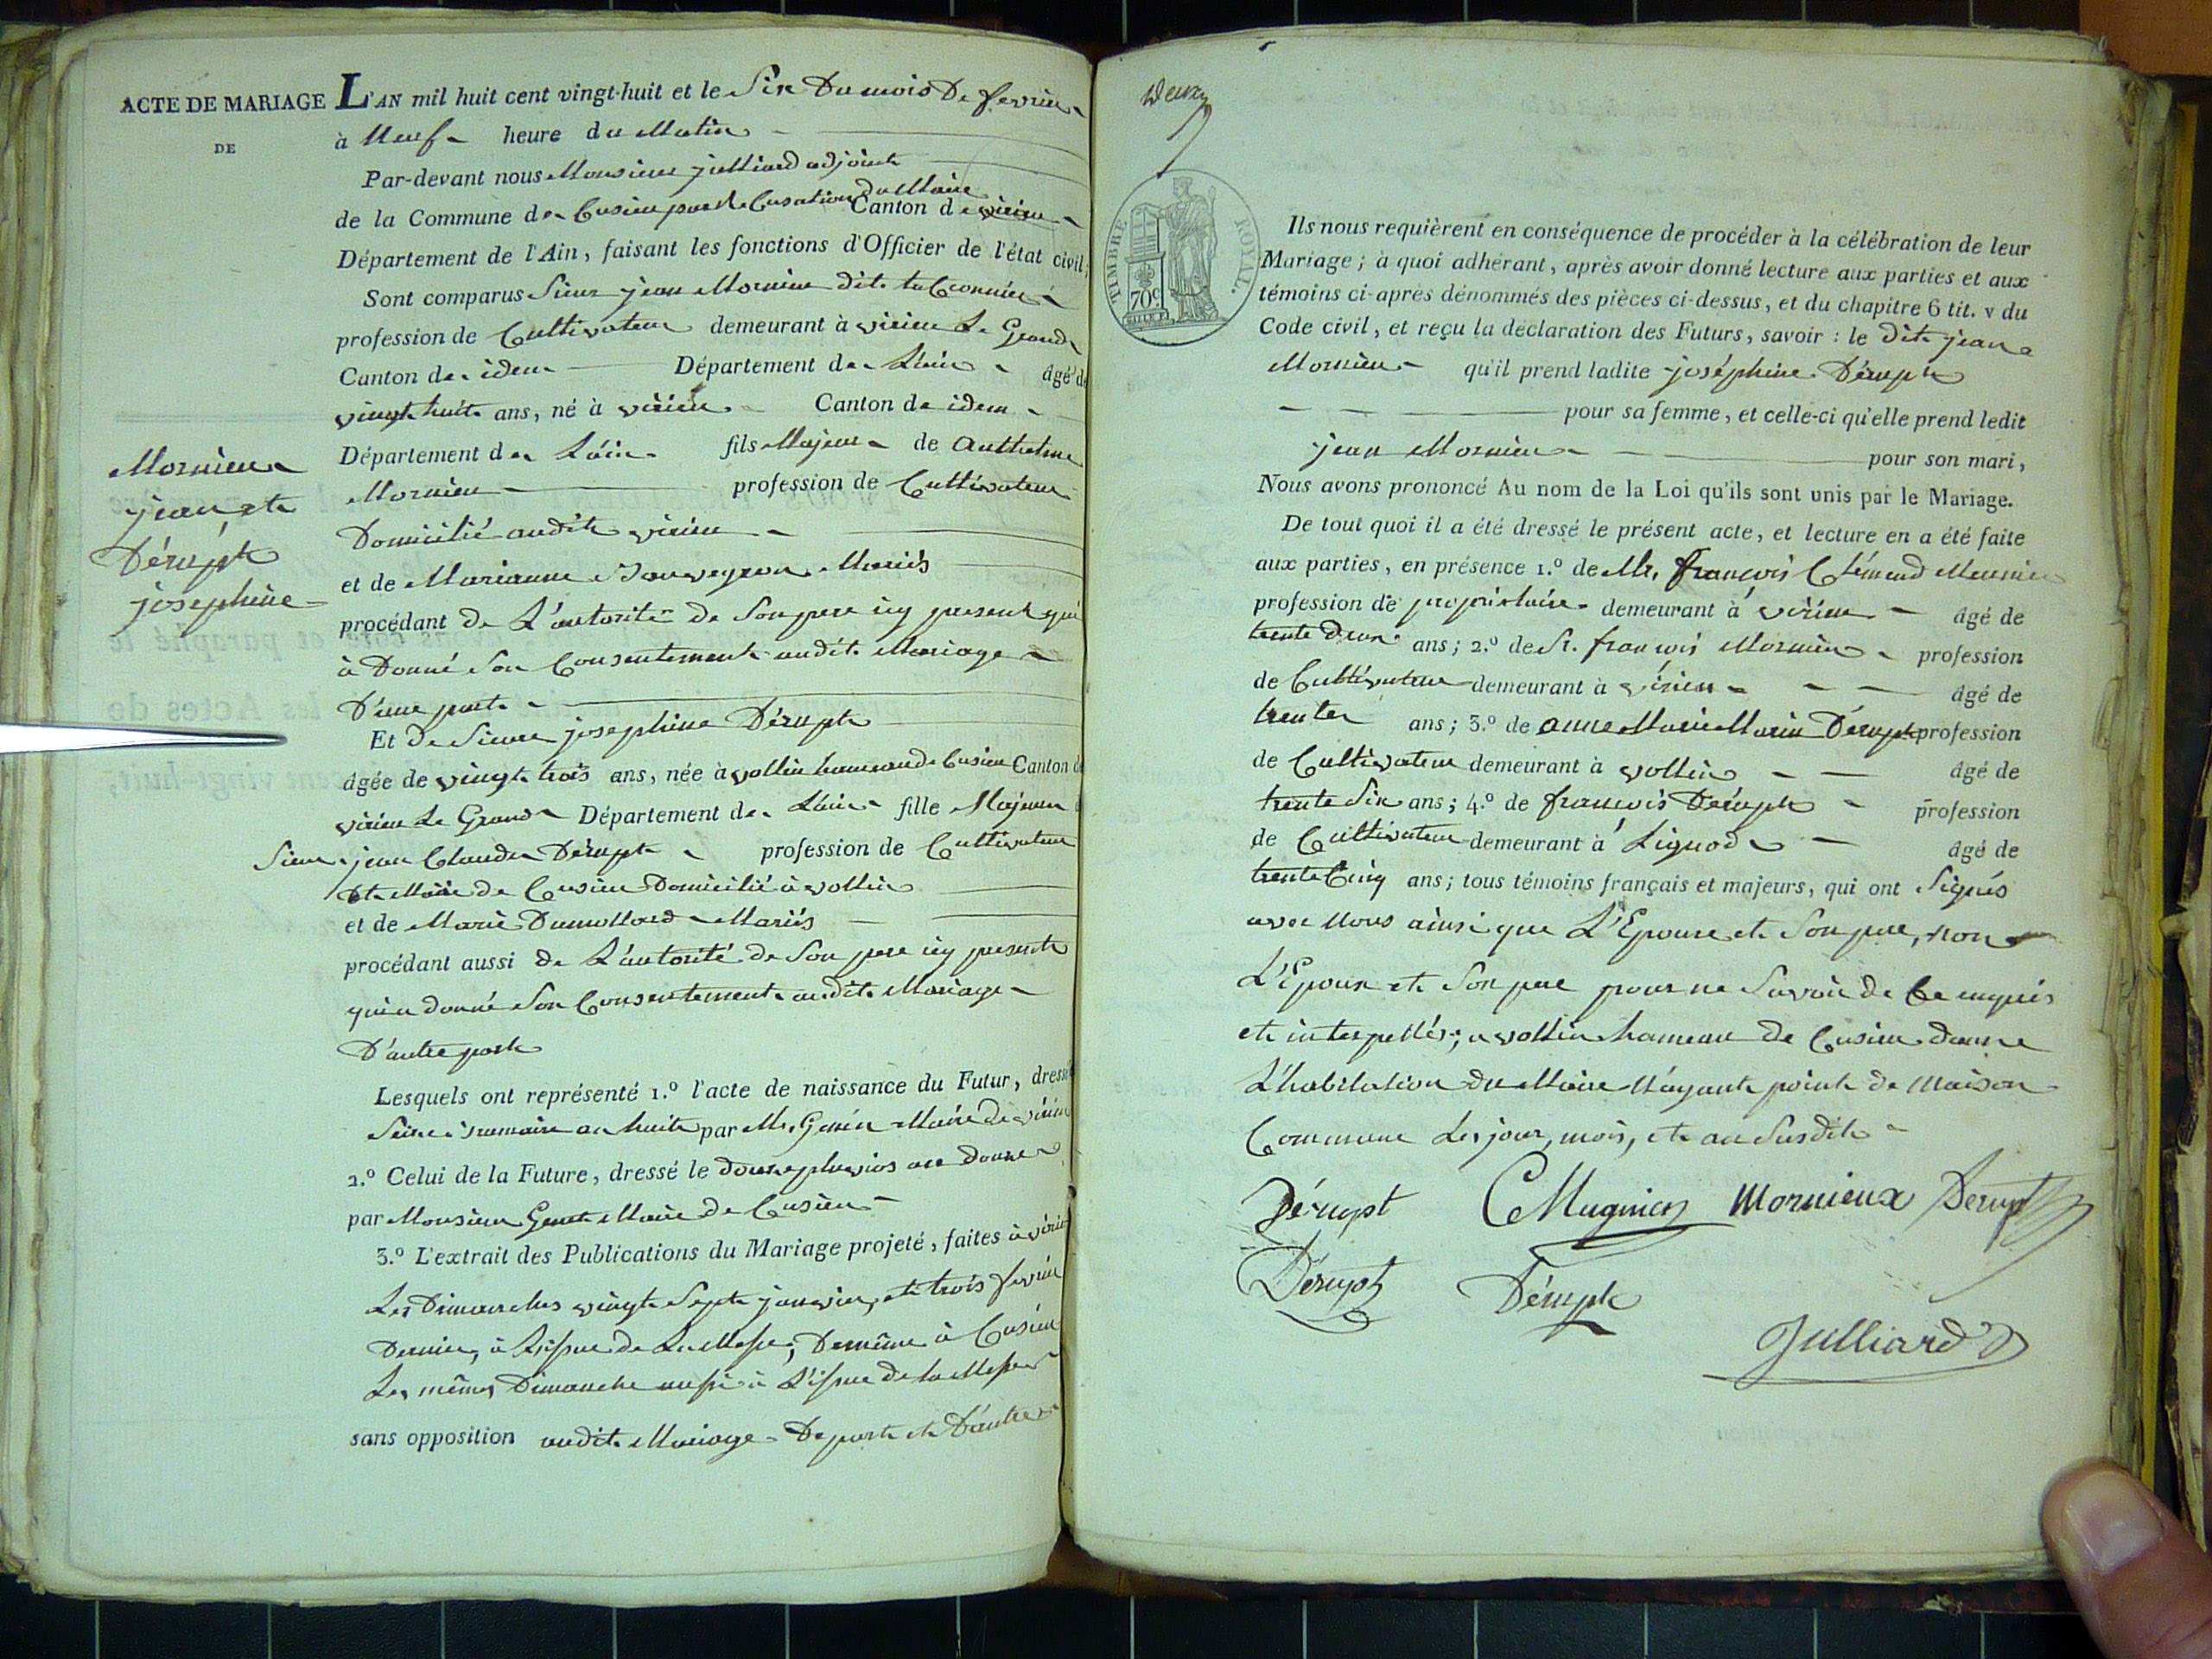 ACTE DE MARIAGE
DE
Mornieu
jean et
Dérupt
josephine
L'AN mil huit cent vingt-huit et le Six Du mois De fevrier
à Neuf heure du Matin
Par-devant nous Monsieur julliard adjoint
du Maire
de la Commune de Cusieu par de Canton de virieu
Département de l'Ain, faisant les fonctions d'Officier de l'état civil,
Sont comparus Sieur jean Mornieu dit
profession de Cultivateur demeurant à virieu Le Grand
Canton de idem Département de L'ain âgé de
vingt huit ans, né à virieu Canton de idem
Département de L'ain fils Majeur de Anthelme
Mornieu profession de Cultivateur
Domicilié audit virieu
et de Marianne Mariés
procédant de L'autorité de Son pere icy present qui
à Donné Son Consentement audit Mariage
D'une part
Et de Sieure josephine Dérupt
âgée de vingt trois ans, née à vollin hameau de Cusieu Canton de
virieu Le Grand Département de L'ain fille Majeure
Sieur jean Claude Dérupt profession de Cultivateur
et Maire de Cusieu Domicilié à vollin
et de Marie Dumollard Mariés
procédant aussi de L'autorité de Son pere icy present
qui a donné Son Consentement audit Mariage
D'autre part
Lesquels ont représenté 1.º l'acte de naissance du Futur, dressé
Seize frimaire an huit par Mr. Maire de virieu
2.º Celui de la Future, dressé le douze pluvios an douze
par Monsieur Maire de Cusieu
3.º L'extrait des Publications du Mariage projeté, faites à virieu
Les Dimanches vingt Sept janvier, et trois fevrier
Dernier, à L'issue de La Messe, De même à Cusieu
Les mêmes Dimanche aussi à L'issue de la Messe
sans opposition audit Mariage De part et D'autre
TIMBRE ROYAL.
70c
Ils nous requièrent en conséquence de procéder à la célébration de leur
Mariage; à quoi adhérant, après avoir donné lecture aux parties et aux
témoins ci-après dénommés des pièces ci-dessus, et du chapitre 6 tit. v du
Code civil, et reçu la déclaration des Futurs, savoir : le dit jean
Mornieu qu'il prend ladite joséphine Dérupt
pour sa femme, et celle-ci qu'elle prend ledit
jean Mornieu pour son mari,
Nous avons prononcé Au nom de la Loi qu'ils sont unis par le Mariage.
De tout quoi il a été dressé le présent acte, et lecture en a été faite
aux parties, en présence 1.º de Mr. françois
profession de propriétaire demeurant à virieu âgé de
trente Deux ans; 2.º de Sr. françois Mornieu profession
de Cultivateur demeurant à virieu âgé de
trente ans; 3.º de anne Marie Marin Dérupt profession
de Cultivateur demeurant à vollin âgé de
trente Six ans; 4.º de françois Dérupt profession
de Cultivateur demeurant à Lignod âgé de
trente Cinq ans; tous témoins français et majeurs, qui ont Signés
avec Nous ainsi que L'Epouse et Son pere, non
L'Epoux et Son pere pour ne Savoir de Ce enquis
et interpellés; a vollin hameau de Cusieu dans
L'habitation du Maire N'ayant point de Maison
Commune Les jour, mois, et an Susdit
Dérupt CMugnier Mornieux Derupt
Dérupt Dérupt
Julliard